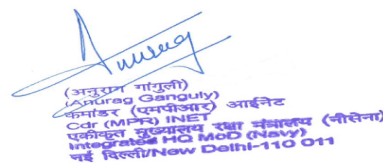 Anurag
(अनुराग गांगुली)
(Anurag Ganguly)
कमांडर (एमपीआर) आईनेट
Cdr (MPR) INET
एकीकृत मुख्यालय रक्षा मंत्रालय (नौसेना)
Integrated HQ MoD (Navy)
नई दिल्ली/New Delhi-110 011